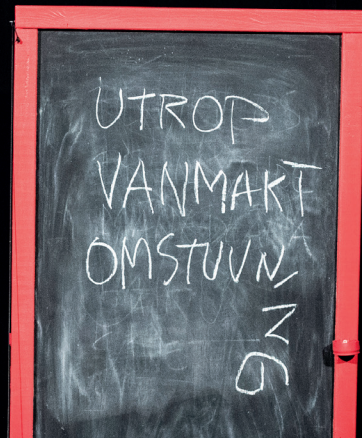 UTROP
VANMAKT
OMSTUVNING